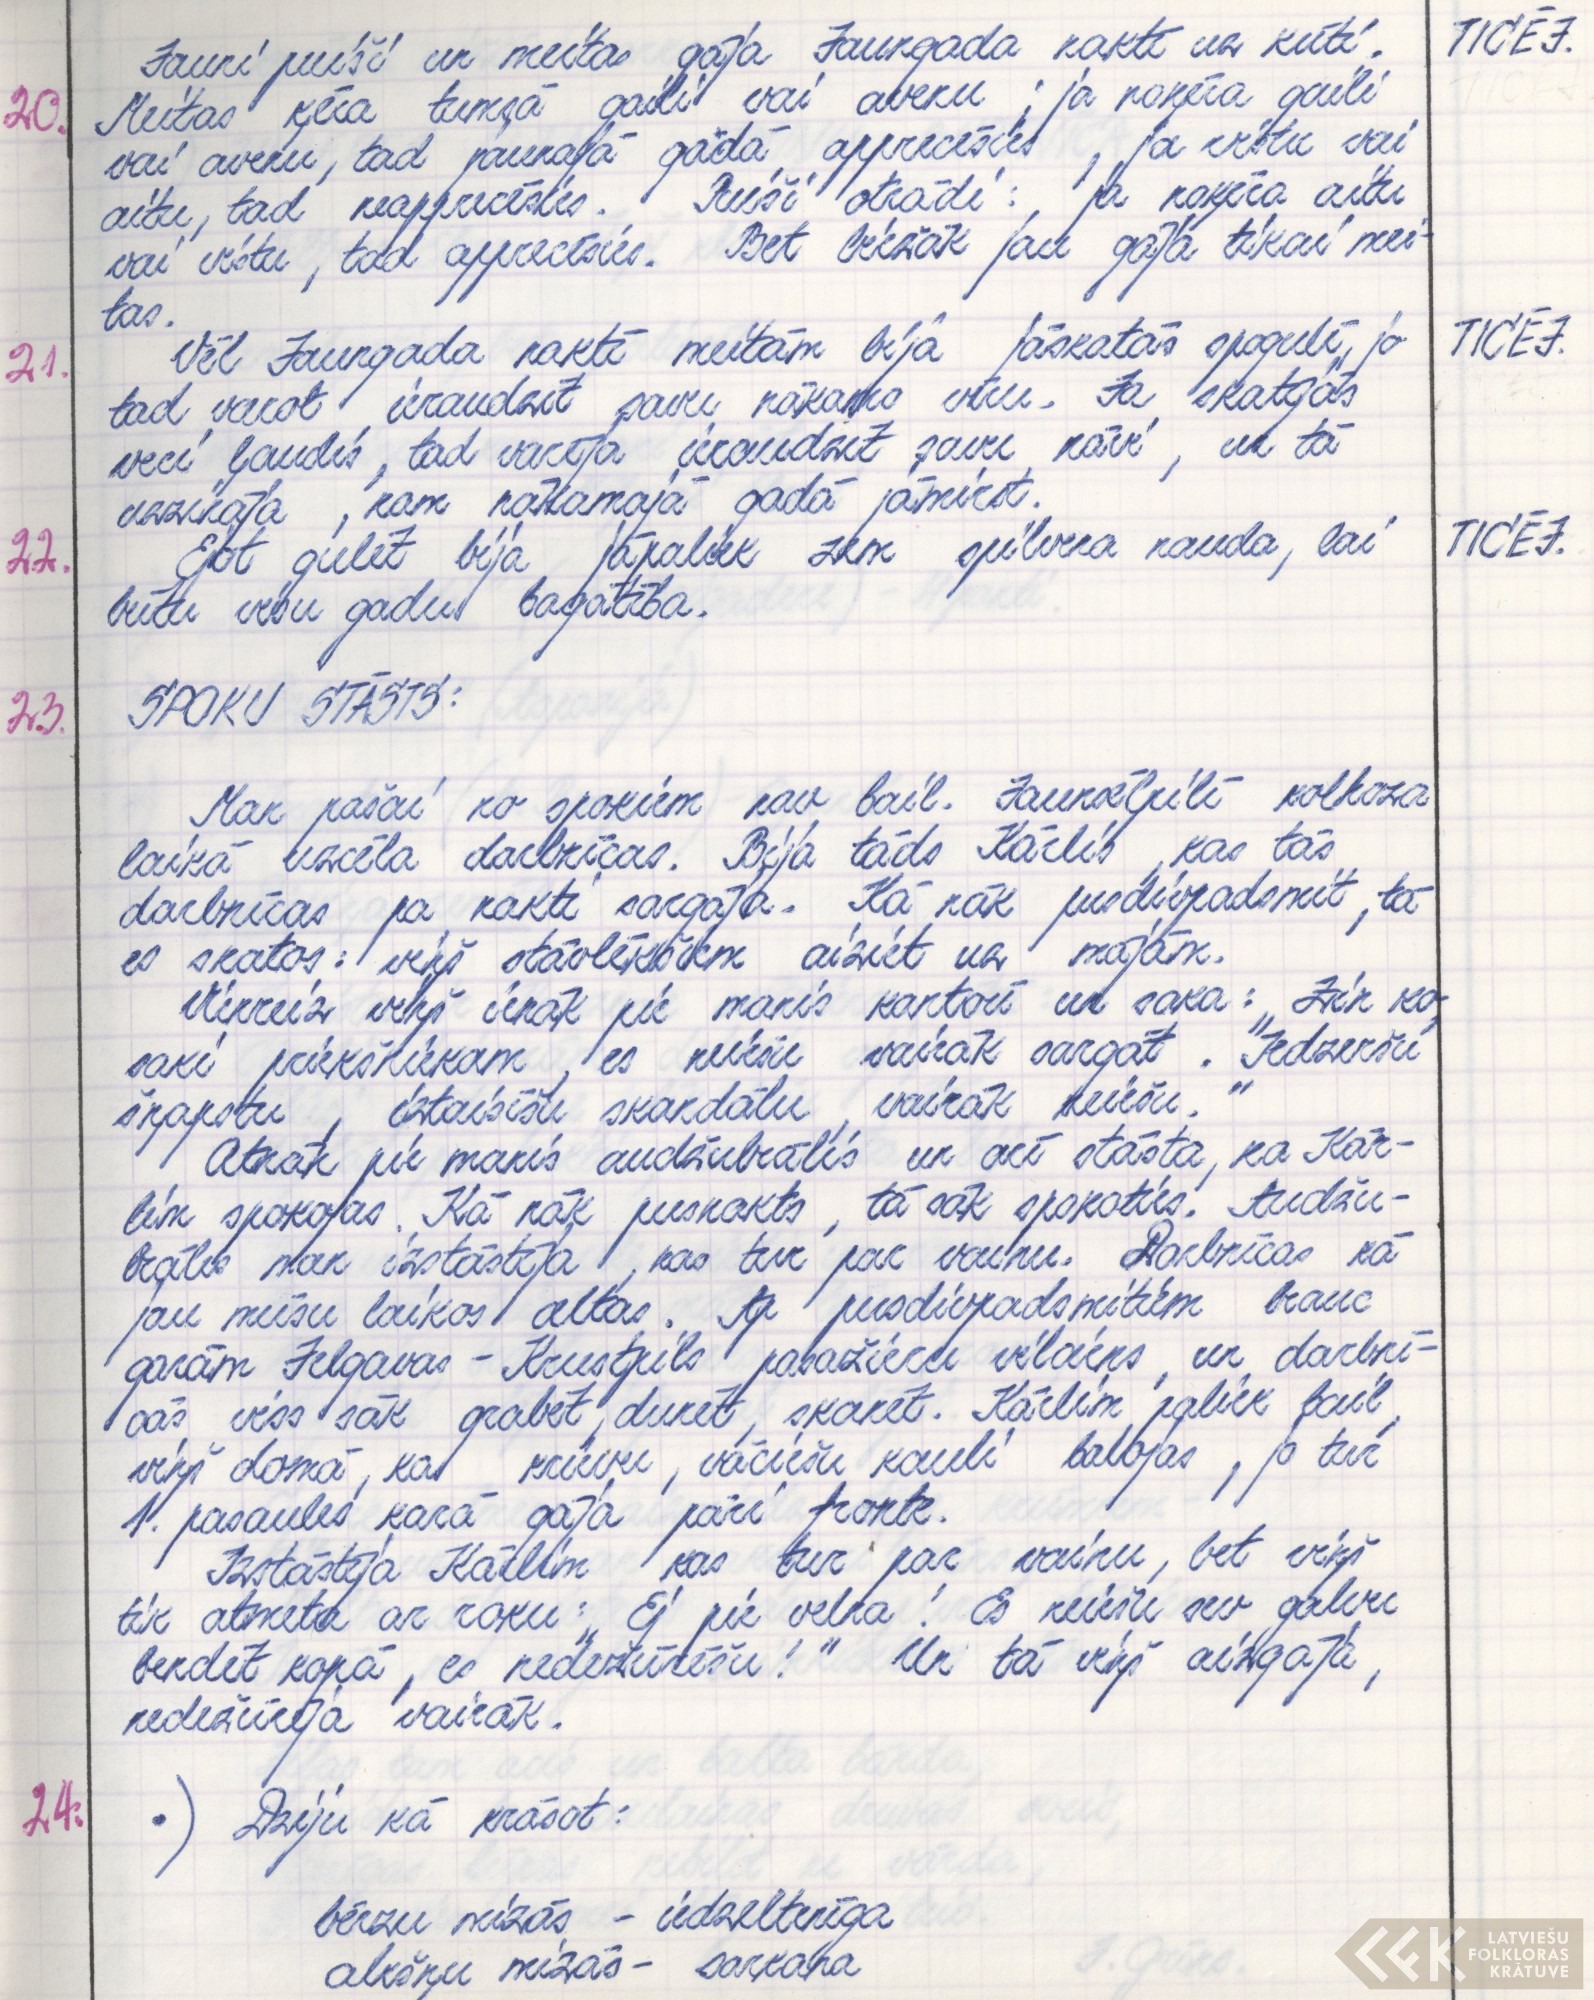 Jauni puiši un meitas gāja Jaungada naktī uz kūti. TICĒJ.
20. Meitas ķēra tumsā gaili vai avenu; ja noķēra gaili
vai avenu, tad jaunajā gadā apprecēsies, ja vistu vai
aitu, tad neapprecēsies. Puiši otrādi: ja noķēra aitu
vai vistu, tad apprecēsies. Bet biežāk jau gāja tikai mei-
tas.
21. Vēl Jaungada naktī meitām bija jāskatās spogulī, jo TICĒJ.
tad varot ieraudzīt savu nākamo vīru. Ja skatījās
veci ļaudis, tad varēja ieraudzīt savu nāvi, un tā
uzzināja, kam nākamajā gadā jāmirst.
22. Ejot gulēt bija jāpaliek zem spilvena nauda, lai TICĒJ.
būtu visu gadu bagātība.
23. SPOKU STĀSTS:
Man pašai no spokiem nav bail. Jaunkalpilī kolhoza
laikā uzcēla darbnīcas. Bija tāds Kārlis, kas tās
darbnīcas pa nakti sargāja. Kā nāk pusdivpadsmit, tā
es skatos: viņš stāvlēkšiem aiziet uz mājām.
Vienreiz viņš ienāk pie manis kantorī un saka: „Zin ko,
saki priekšniekam, es neiešu vairāk sargāt. "Iedzeršu
šņapstu, iztaisīšu skandālu, vairāk neiešu."
Atnāk pie manis audžubrālis un arī stāsta, ka Kār-
lim spokojas. Kā nāk pusnakts, tā sāk spokoties. Audžu-
brālis man izstāstīja, kas tur par vainu. Darbnīcas kā
jau mūsu laikos celtas. Ap pusdivpadsmitiem brauc
garām Jelgavas - Krustpils pasažieru vilciens, un darbnī-
cās viss sāk grabēt, dunēt, skanēt. Kārlim paliek bail,
viņš domā, ka krievu, vāciešu kauli balojas, jo tur
1. pasaules karā gāja pāri fronte.
Izstāstīja Kārlim kas tur par vainu, bet viņš
tik atmeta ar roku: „Ej pie velna! Es neiešu sev galvu
bendēt kopā, es nedežūrēšu!" Un tā viņš aizgāja,
nedežūrēja vairāk.
24. •) Dziju kā krāsot:
bērzu mizās - iedzeltenīga
alkšņu mizās - sarkana
LATVIEŠU
FOLKLORAS
KRĀTUVE